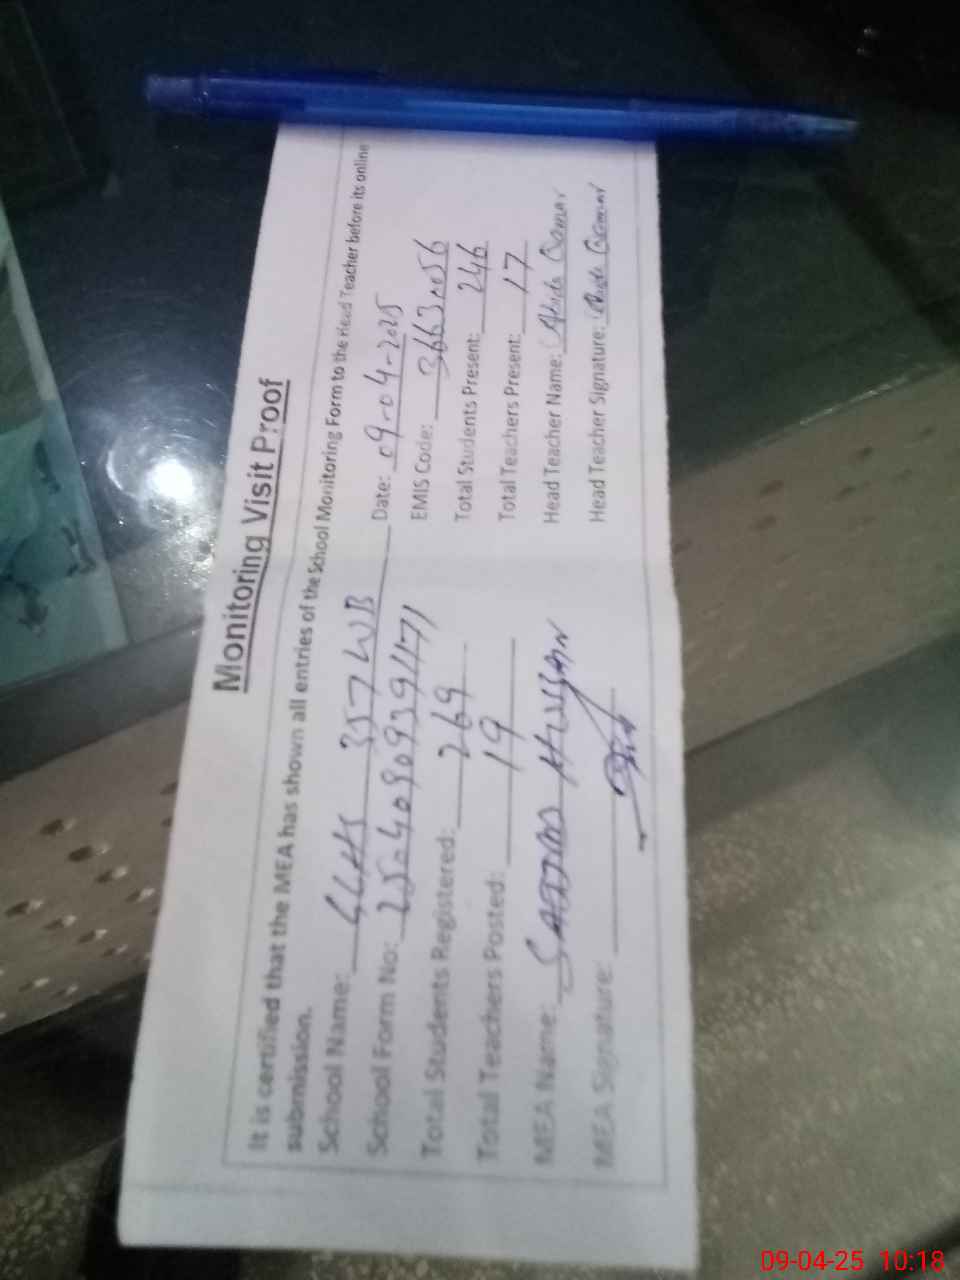 Monitoring Visit Proof
It is certified that the MEA has shown all entries of the School Monitoring Form to the Head Teacher before its online
submission.
School Name: GGHS 357 WB Date: 09-04-2025
School Form No: EMIS Code:
Total Students Registered: 269 Total Students Present: 246
Total Teachers Posted: 19 Total Teachers Present: 17
MEA Name: SAJJAD HUSSAIN Head Teacher Name: Abida Qamar
MEA Signature: Head Teacher Signature: Abida Qamar
09-04-25 10:18